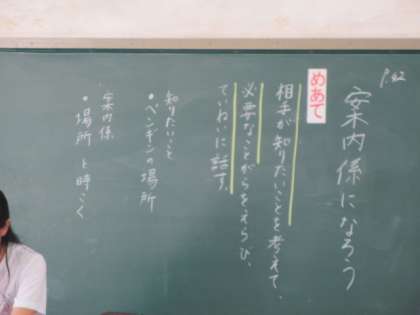 P.42
案内係になろう
めあて
相手が知りたいことを考えて、
必要なことがらをえらび、
ていねいに話す。
知りたいこと
・ペンギンの場所
案内係
・場所と時こく